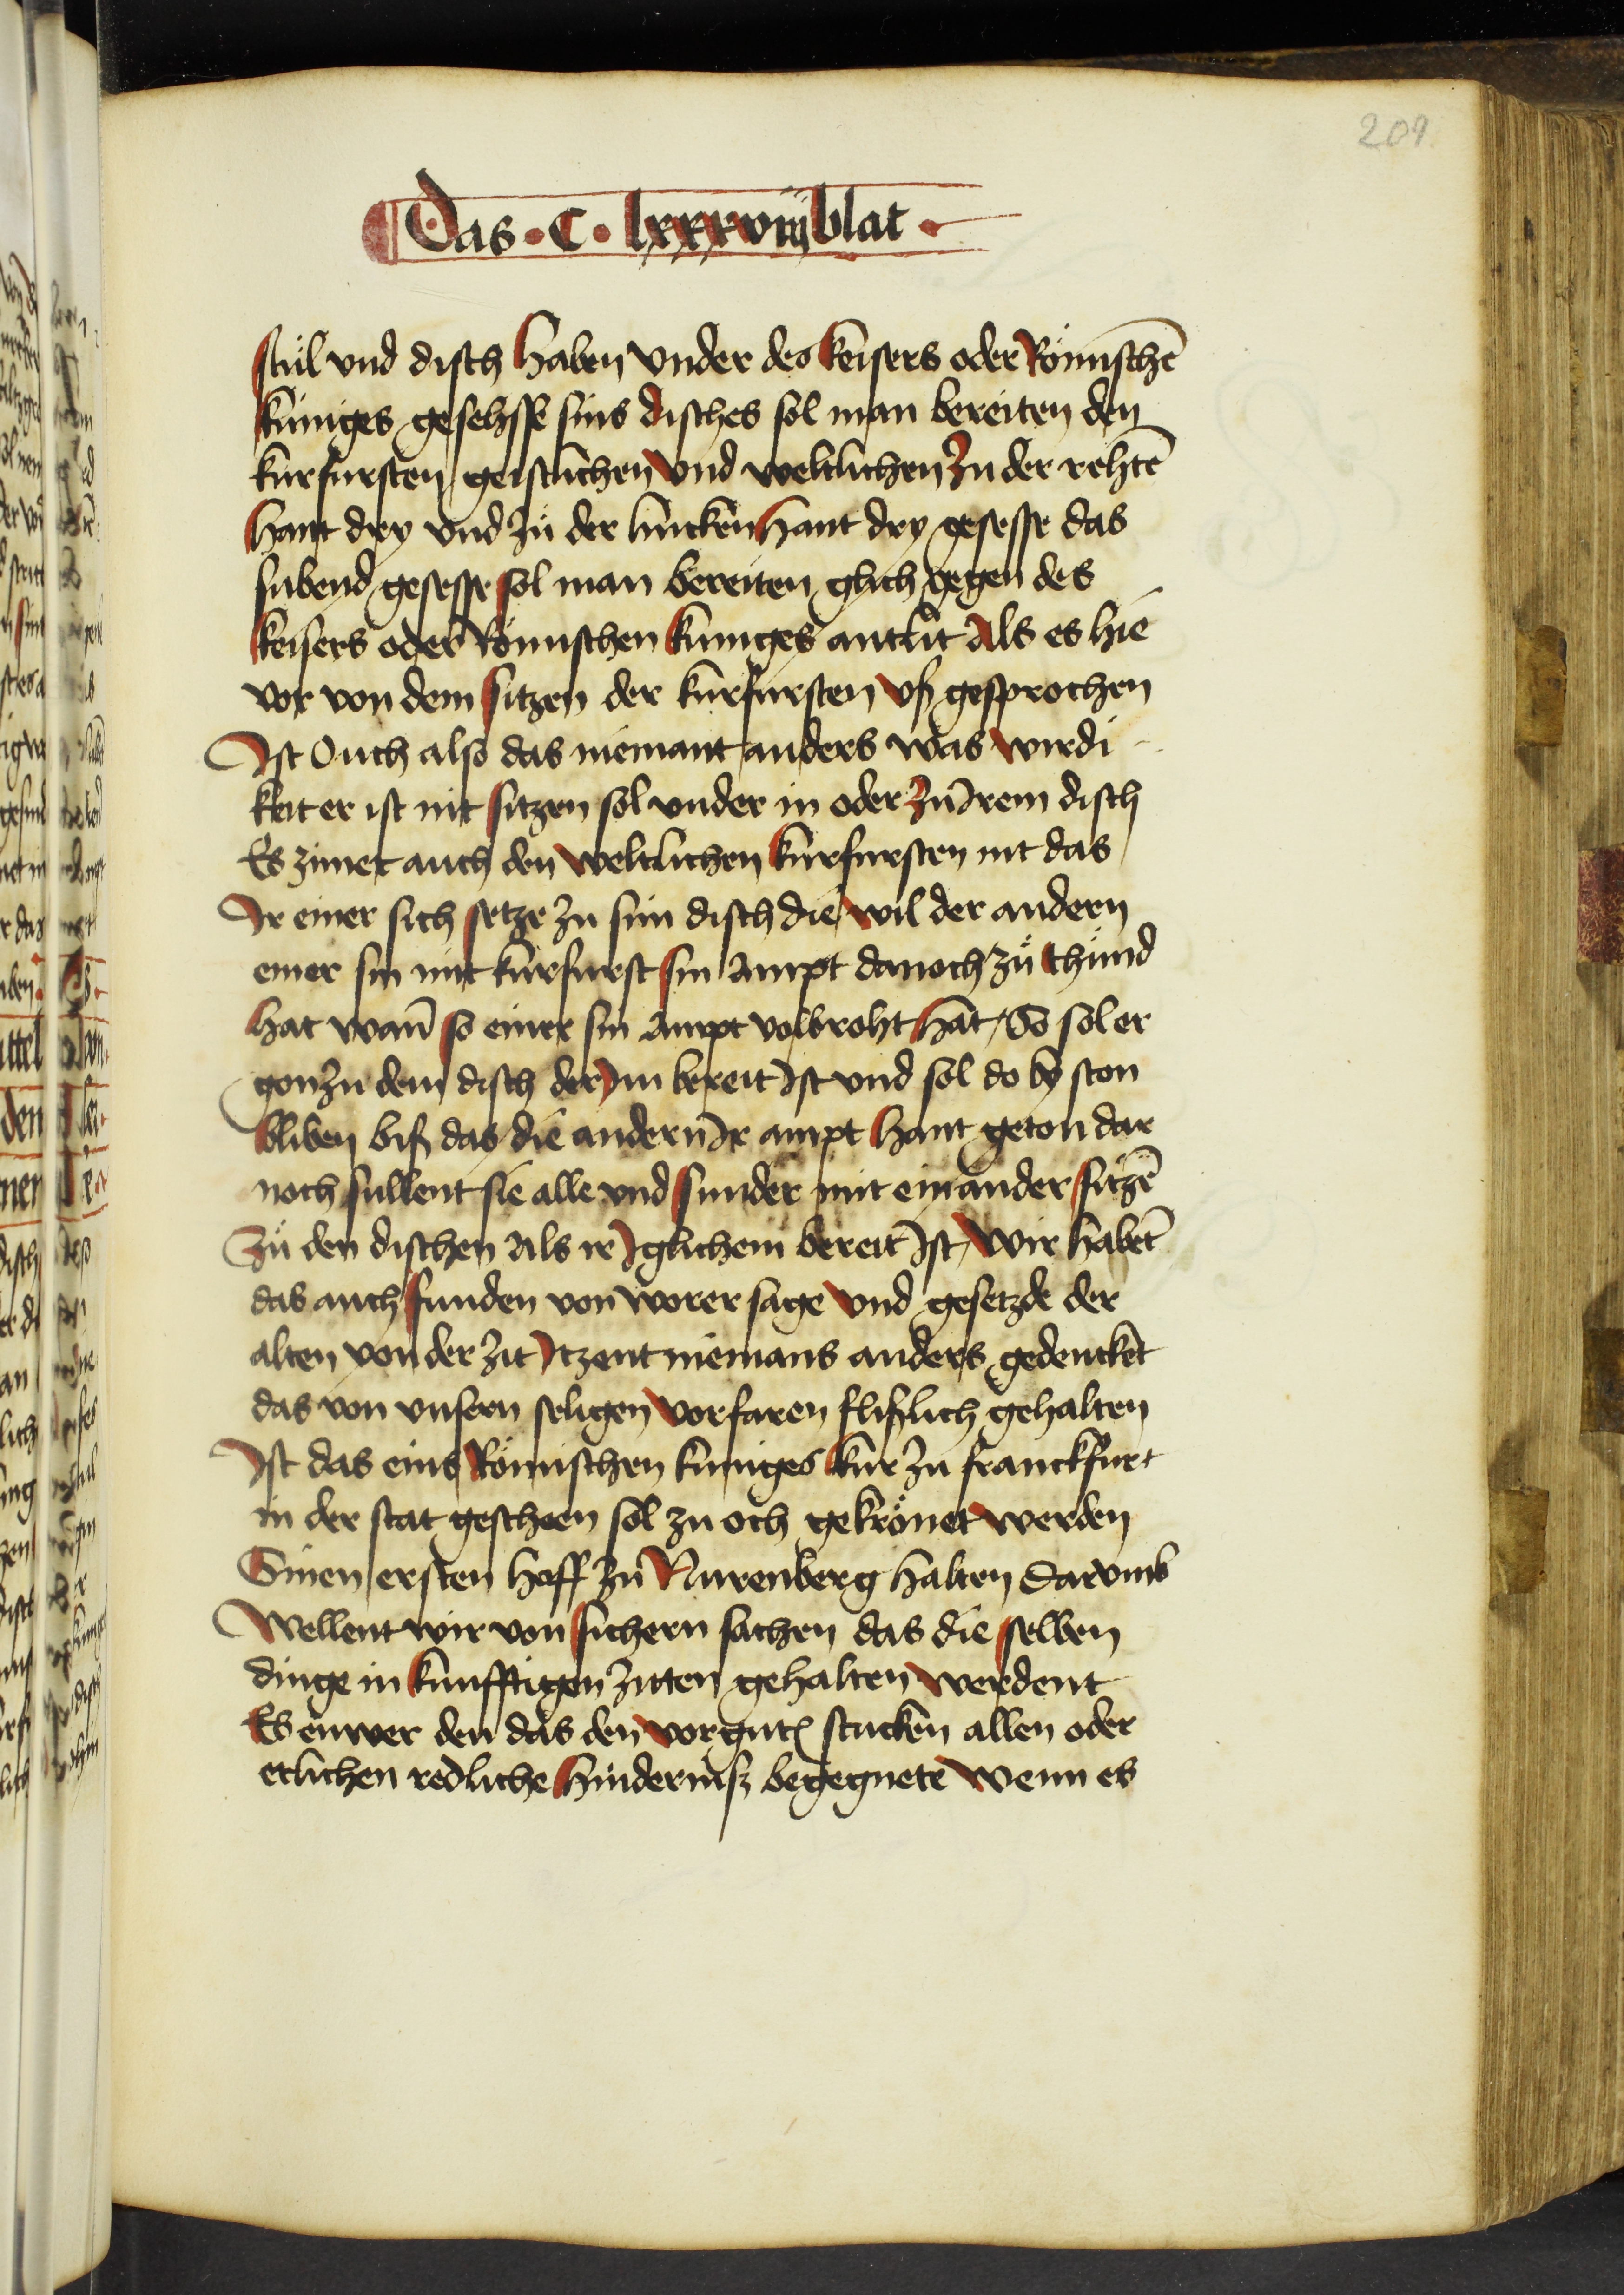 209
Das · C · lxxxviij blat ·
stůl vnd disch haben vnder des keisers oder Römischē
kuniges gesehsse sins disches sol man bereiten den
kurfursten geistlichen vnd weltlichen Zu der rehtē
hant dry vnd zů der lincken hant dry gesesse das
subend gesesse sol man bereiten glich gegen des
keisers oder Römischen kuniges antlit Als es hie
vor von dem sitzen der kurfursten vß gesprochen
Ist Ouch also das niemant anders was wirdi
kleit er ist nit sitzen sol vnder in oder zu Irem disch
Es zimet auch den weltlichen kurfursten nit das
Ir einer sich setze zu sim disch die wil der andern
einer sin mit kurfurst sin Ampt danoch zů thůnd
hat wañ so einer sin Ampt volbroht hat / So sol er
gon zu dem disch der Im bereit Ist vnd sol do by ston
bliben biß das die andern Ir ampt hant geton dar
noch sullent sie alle vnd sunder mit einander sitzē
Zů den dischen Als ir Iglichem bereit Ist / Wir habēt
das auch funden von worer sage vnd gesetzde der
alten von der zit Itzent niemans anders gedencket
das von vnsern seligen vorfaren flißlich gehalten
Ist das eins Römischen kuniges kur zu franckfurt
in der stat gescheen sol zu och gekrönet werden
Sinen ersten hoff zu Nurenberg halten Darvmb
Wellent wir von sichern sachen das die selben
dinge in kunfftigen zitten gehalten werdent
Es enwer den das den vorgntē stucken allen oder
etlichen redliche hinderniß begegnete Wenn es